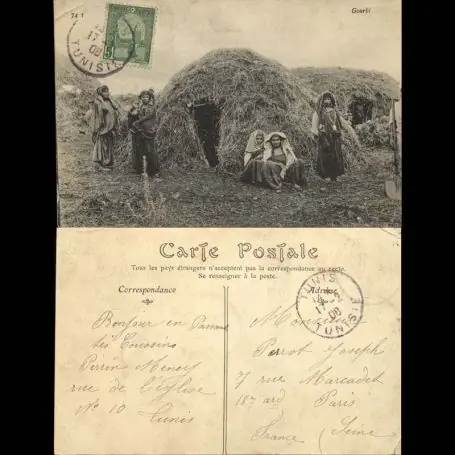 74 T
Gourbi
TUNISIE
17
08
5
Carte Postale
Tous les pays étrangers n'acceptent pas la correspondance au recto.
Se renseigner à la poste.
Correspondance
Adresse
TUNIS
17
08
TUNISIE
Bonjour en Passant
tes Cousins
Perrin Mency
rue de l'Eglise
No 10 Tunis
Monsieur
Perrot Joseph
7 rue Marcadet
18e ard Paris
France (Seine)